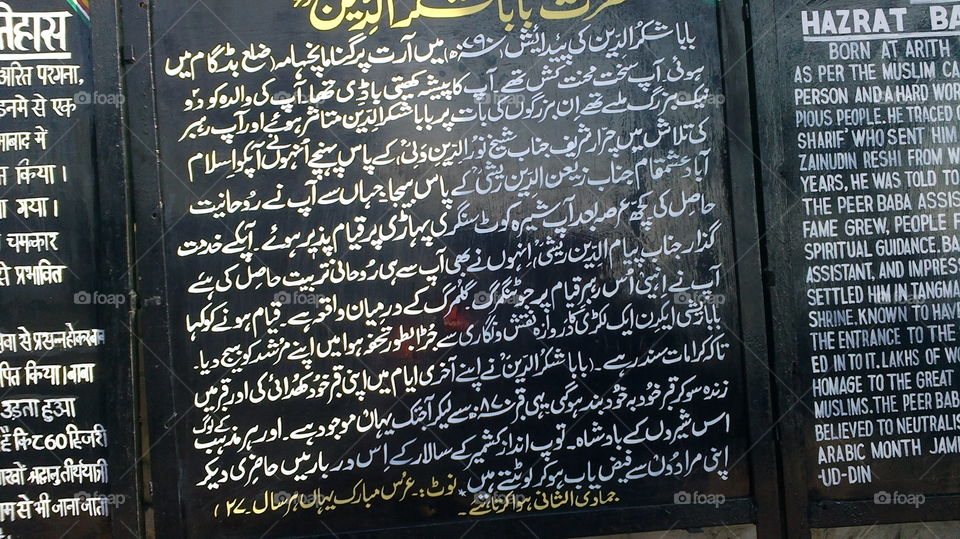 इतिहास
परगना,
इनमे से एक
में
किया।
गया।
चमत्कार
से प्रभावित
किया। बाबा
उड़ता हुआ
860 हिजरी
से भी जाना जाता
حضرت بابا شکر الدین
بابا شکر الدین کی پیدائش ۷۹۰ھ میں آرت پرگنا مانچھامہ (ضلع بڈگام میں
ہوئی۔ آپ سخت محنت کش تھے۔ آپ کا پیشہ کھیتی باڑی تھا۔ آپ کی والدہ کو دو
نیک بزرگ ملے تھے ان بزرگوں کی بات پر بابا شکر الدین متاثر ہوئے اور آپ رہبر
کی تلاش میں چرار شریف جناب شیخ نور الدین ولیؒ کے پاس پہنچے اُنہوں نے آپکو اسلام
آباد عشمقام جناب زین الدین ریشیؒ کے پاس بھیجا۔ جہاں سے آپ نے روحانیت
حاصل کی کچھ عرصہ بعد آپ شیرہ کوٹ سنگری پہاڑی پر قیام پذیر ہوئے۔ آپکے خدمت
گذار جناب پیام الدین ریشیؒ، اِنہوں نے بھی آپ سے ہی روحانی تربیت حاصل کی ہے
آپ نے اپنی اُس رہبر قیام پر جو ٹنگمرگ گلمرگ کے درمیان واقعہ ہے۔ قیام ہونے کو کہا
بابا ریشی ایکرن ایک لکڑی کا دروازہ نقش و نگاری سے بطور تحفہ ہوا میں اپنے مرشد کو بھیج دیا۔
تاکہ کرامات سند رہے۔ (بابا شکر الدینؒ نے اپنے آخری ایام میں اپنی قبر خود کھدائی کی اور قبر میں
زندہ سو کر قبر خود بہ خود بند ہوگئی۔ یہی قبر ۸۷۰ھ سے لیکر آجتک یہاں موجود ہے۔ اور ہر مذہب کے لوگ
اس شیروں کے بادشاہ۔ توپ انداز کشمیر کے سالار کے اِس دربار میں حاضری دیکر
اپنی مرادوں سے فیض یاب ہوکر لوٹتے ہیں۔ نوٹ:- عرُس مبارک یہاں ہر سال ۲۷
جمادی الثانی ہوا کرتا ہے۔
HAZRAT BA
BORN AT ARITH
AS PER THE MUSLIM CA
PERSON AND A HARD WOR
PIOUS PEOPLE. HE TRACED
SHARIF' WHO SENT HIM
ZAINUDIN RESHI FROM W
YEARS, HE WAS TOLD TO
THE PEER BABA ASSIS
FAME GREW, PEOPLE F
SPIRITUAL GUIDANCE. BA
ASSISTANT, AND IMPRES
SETTLED HIM IN TANGMA
SHRINE. KNOWN TO HAV
THE ENTRANCE TO THE
ED IN TO IT. LAKHS OF WO
HOMAGE TO THE GREAT
MUSLIMS. THE PEER BAB
BELIEVED TO NEUTRALIS
ARABIC MONTH JAM
-UD-DIN